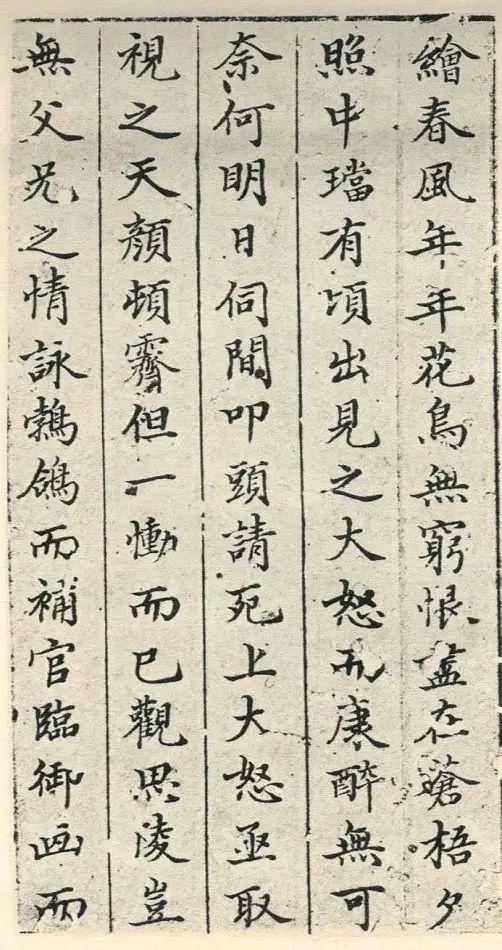 繪春風年年花鳥無窮恨盡在蒼梧夕
照中璫有頃出見之大怒而康醉無可
奈何明日伺間叩頭請死上大怒亟取
視之天顏頓霽但一慟而已觀思陵豈
無父兄之情詠鶺鴒而補官臨御画而